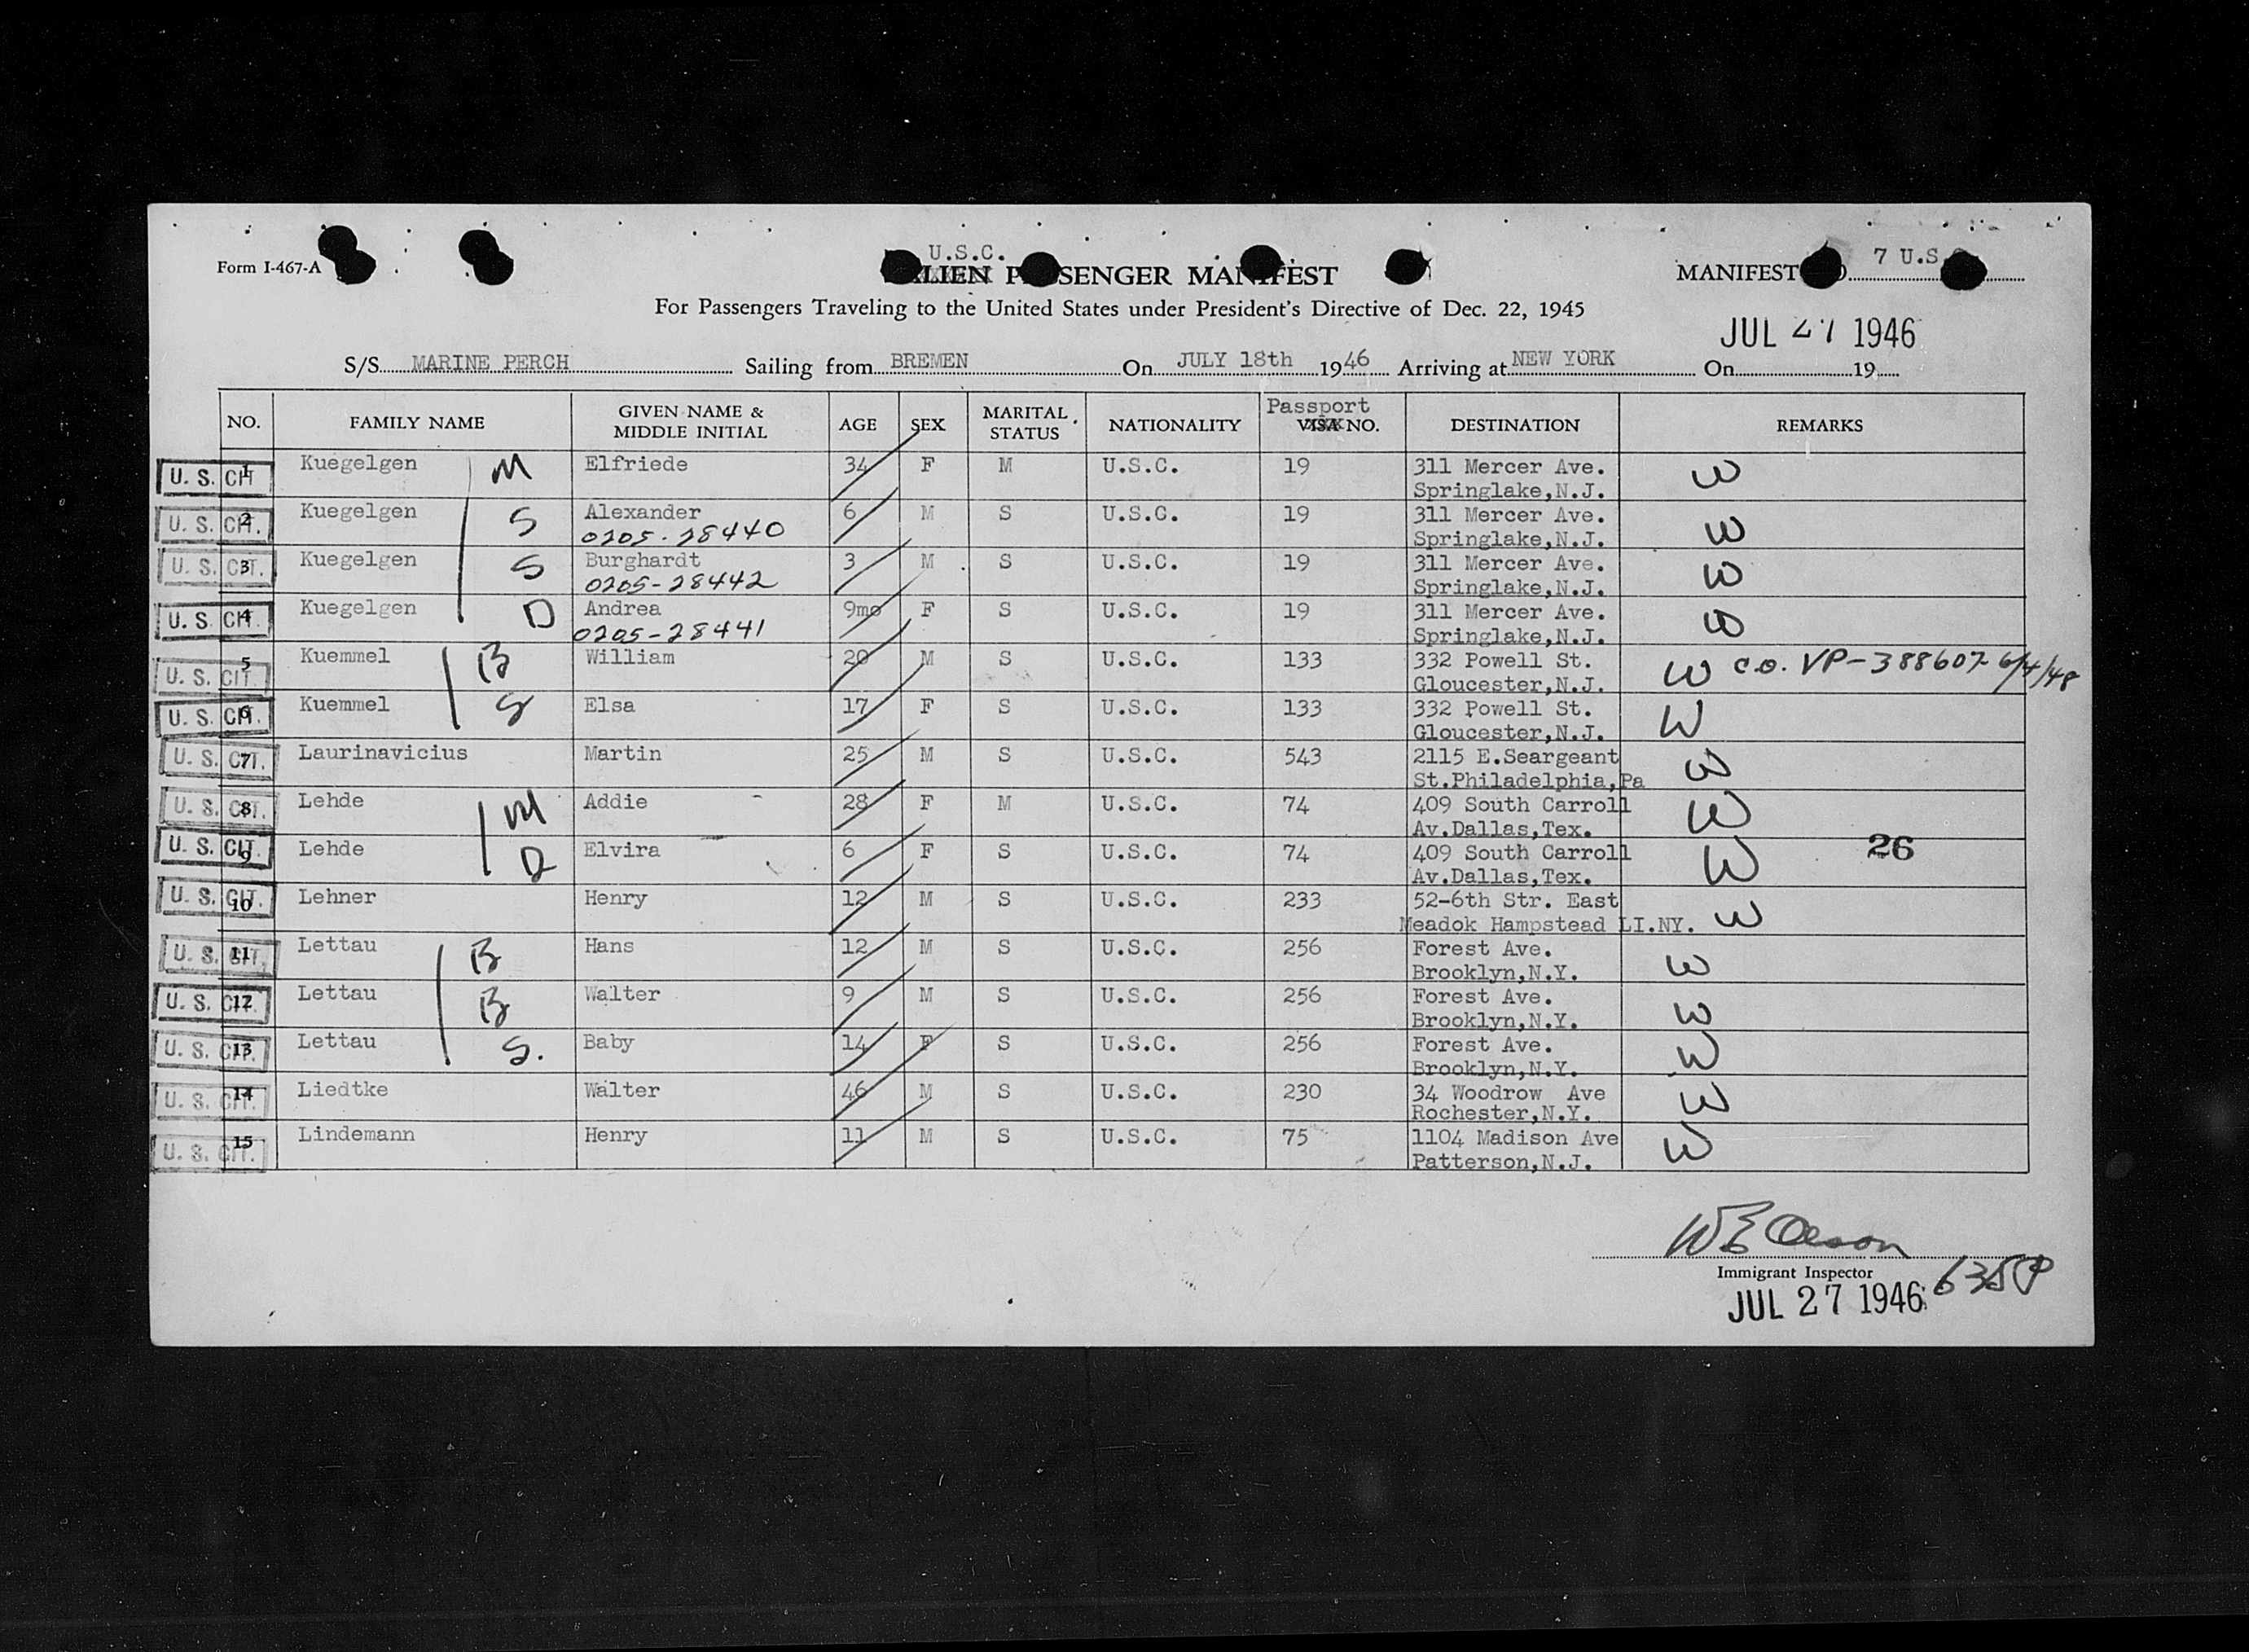 U.S.C.
Form I-467-A
PASSENGER MANIFEST
MANIFEST 7 U.S.
For Passengers Traveling to the United States under President's Directive of Dec. 22, 1945
JUL 27 1946
S/S MARINE PERCH Sailing from BREMEN On JULY 18th 1946 Arriving at NEW YORK On 19
NO. FAMILY NAME GIVEN NAME & MIDDLE INITIAL AGE SEX MARITAL STATUS NATIONALITY Passport NO. DESTINATION REMARKS
U. S. CIT 1 Kuegelgen M Elfriede 34 F M U.S.C. 19 311 Mercer Ave. W
Springlake,N.J.
U. S. CIT. 2 Kuegelgen S Alexander 6 M S U.S.C. 19 311 Mercer Ave. W
0205-28440 Springlake,N.J.
U. S. CIT. 3 Kuegelgen S Burghardt 3 M S U.S.C. 19 311 Mercer Ave. W
0205-28442 Springlake,N.J.
U. S. CIT. 4 Kuegelgen D Andrea 9mo F S U.S.C. 19 311 Mercer Ave. W
0205-28441 Springlake,N.J.
U. S. CIT. 5 Kuemmel B William 20 M S U.S.C. 133 332 Powell St. W c.o. VP-388607-6/4/48
Gloucester,N.J.
U. S. CIT. 6 Kuemmel S Elsa 17 F S U.S.C. 133 332 Powell St. W
Gloucester,N.J.
U. S. CIT. 7 Laurinavicius Martin 25 M S U.S.C. 543 2115 E.Seargeant W
St.Philadelphia,Pa
U. S. CIT. 8 Lehde M Addie 28 F M U.S.C. 74 409 South Carroll W
Av.Dallas,Tex.
U. S. CIT. 9 Lehde D Elvira 6 F S U.S.C. 74 409 South Carroll W 26
Av.Dallas,Tex.
U. S. CIT. 10 Lehner Henry 12 M S U.S.C. 233 52-6th Str. East W
Meadok Hampstead LI.NY.
U. S. CIT. 11 Lettau B Hans 12 M S U.S.C. 256 Forest Ave. W
Brooklyn,N.Y.
U. S. CIT. 12 Lettau B Walter 9 M S U.S.C. 256 Forest Ave. W
Brooklyn,N.Y.
U. S. CIT. 13 Lettau S. Baby 14 F S U.S.C. 256 Forest Ave. W
Brooklyn,N.Y.
U. S. CIT. 14 Liedtke Walter 46 M S U.S.C. 230 34 Woodrow Ave W
Rochester,N.Y.
U. S. CIT. 15 Lindemann Henry 11 M S U.S.C. 75 1104 Madison Ave W
Patterson,N.J.
Immigrant Inspector
JUL 27 1946